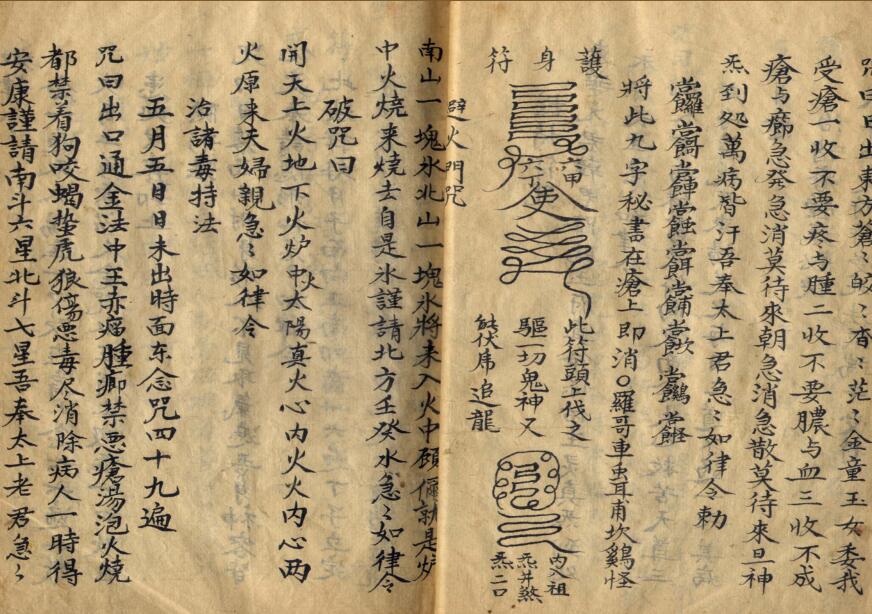 咒曰日出東方蒼〻皎〻杳〻茫〻金童玉女委我
受瘡一收不要疼与腫二收不要膿与血三收不成
瘡与癤急發急消莫待來朝急消急散莫待來旦神
炁到処萬病皆汗吾奉太上君急〻如律令勅
將此九字秘書在瘡上即消〇羅哥車虫耳甫坎鷄怪
護身符
六甲
使
此符頭上伐之
驅一切鬼神又
能伏虎追龍
內八祖
炁并煞
炁二口
避火門咒
南山一塊氷北山一塊氷將来入火中頋儞就是炉
中火燒来燒去自是氷謹請北方壬癸水急〻如律令
破咒曰
開天上火地下火炉中火太陽真火心内火火内心两
火原来夫婦親急〻如律令
治諸毒持法
五月五日日未出時面东念咒四十九遍
咒曰出口通金法中王赤瘤腫禁悪瘡湯泡火燒
都禁着狗咬蝎蛰虎狼傷悪毒尽消除病人一時得
安康謹請南斗六星北斗七星吾奉太上老君急〻